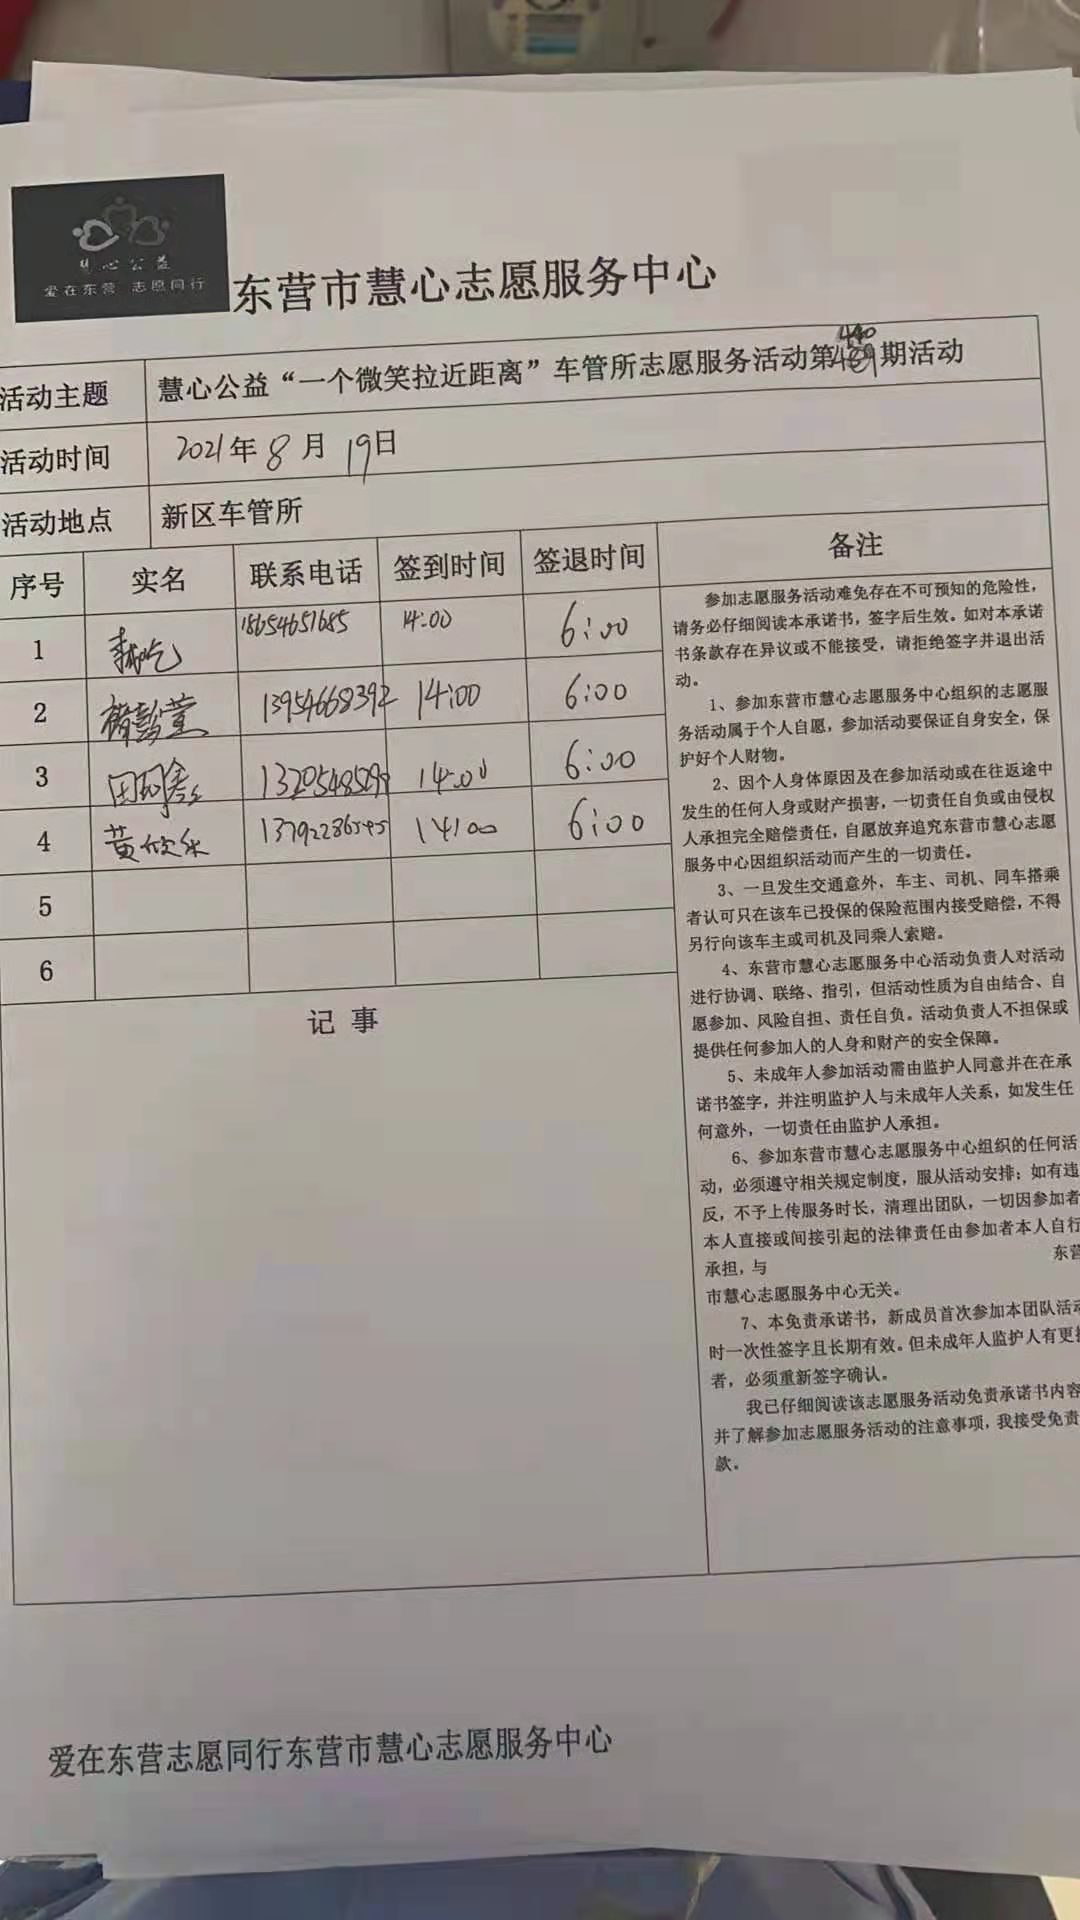 慧心公益
爱在东营 志愿同行
东营市慧心志愿服务中心
活动主题 慧心公益“一个微笑拉近距离”车管所志愿服务活动第440期活动
活动时间 2021年8月19日
活动地点 新区车管所
序号 实名 联系电话 签到时间 签退时间 备注
1 18654651685 14:00 6:00
2 13954668392 14:00 6:00
3 14:00 6:00
4 黄欣乐 13792286545 14:00 6:00
5
6
记 事
参加志愿服务活动难免存在不可预知的危险性，
请务必仔细阅读本承诺书，签字后生效。如对本承诺
书条款存在异议或不能接受，请拒绝签字并退出活
动。
1、参加东营市慧心志愿服务中心组织的志愿服
务活动属于个人自愿，参加活动要保证自身安全，保
护好个人财物。
2、因个人身体原因及在参加活动或在往返途中
发生的任何人身或财产损害，一切责任自负或由侵权
人承担完全赔偿责任，自愿放弃追究东营市慧心志愿
服务中心因组织活动而产生的一切责任。
3、一旦发生交通意外，车主、司机、同车搭乘
者认可只在该车已投保的保险范围内接受赔偿，不得
另行向该车主或司机及同乘人索赔。
4、东营市慧心志愿服务中心活动负责人对活动
进行协调、联络、指引，但活动性质为自由结合、自
愿参加、风险自担、责任自负。活动负责人不担保或
提供任何参加人的人身和财产的安全保障。
5、未成年人参加活动需由监护人同意并在在承
诺书签字，并注明监护人与未成年人关系，如发生任
何意外，一切责任由监护人承担。
6、参加东营市慧心志愿服务中心组织的任何活
动，必须遵守相关规定制度，服从活动安排；如有违
反，不予上传服务时长，清理出团队，一切因参加者
本人直接或间接引起的法律责任由参加者本人自行
承担，与 东营
市慧心志愿服务中心无关。
7、本免责承诺书，新成员首次参加本团队活动
时一次性签字且长期有效。但未成年人监护人有更换
者，必须重新签字确认。
我已仔细阅读该志愿服务活动免责承诺书内容
并了解参加志愿服务活动的注意事项，我接受免责
款。
爱在东营志愿同行东营市慧心志愿服务中心